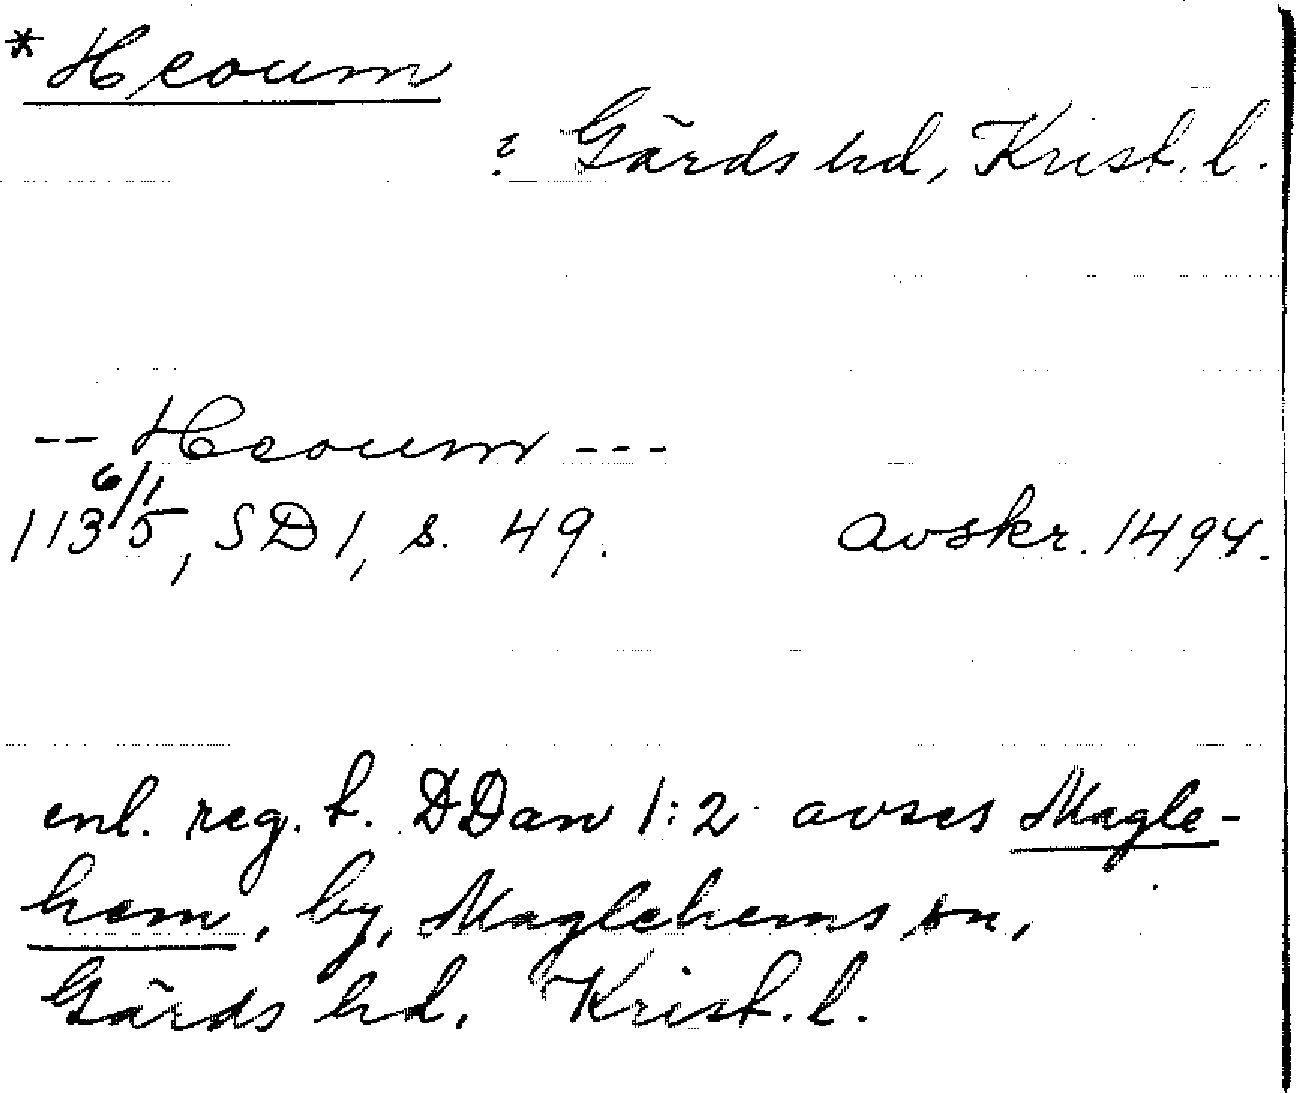 * Heoum
? Gärds hd, Krist. l.
-- Heoum ---
6/1
1135, SD 1, s. 49. avskr. 1494.
enl. reg. t. DDan 1:2 avses Magle-
hem, by, Maglehems sn,
Gärds hd. Krist. l.